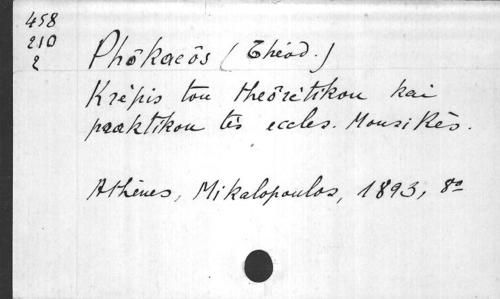 458
210
2
Phôkaeôs (Théod.)
Krêpis tou theôrêtikou kai
praktikou tês eccles. Mousikês.
Athènes, Mikalopoulos, 1893, 8º